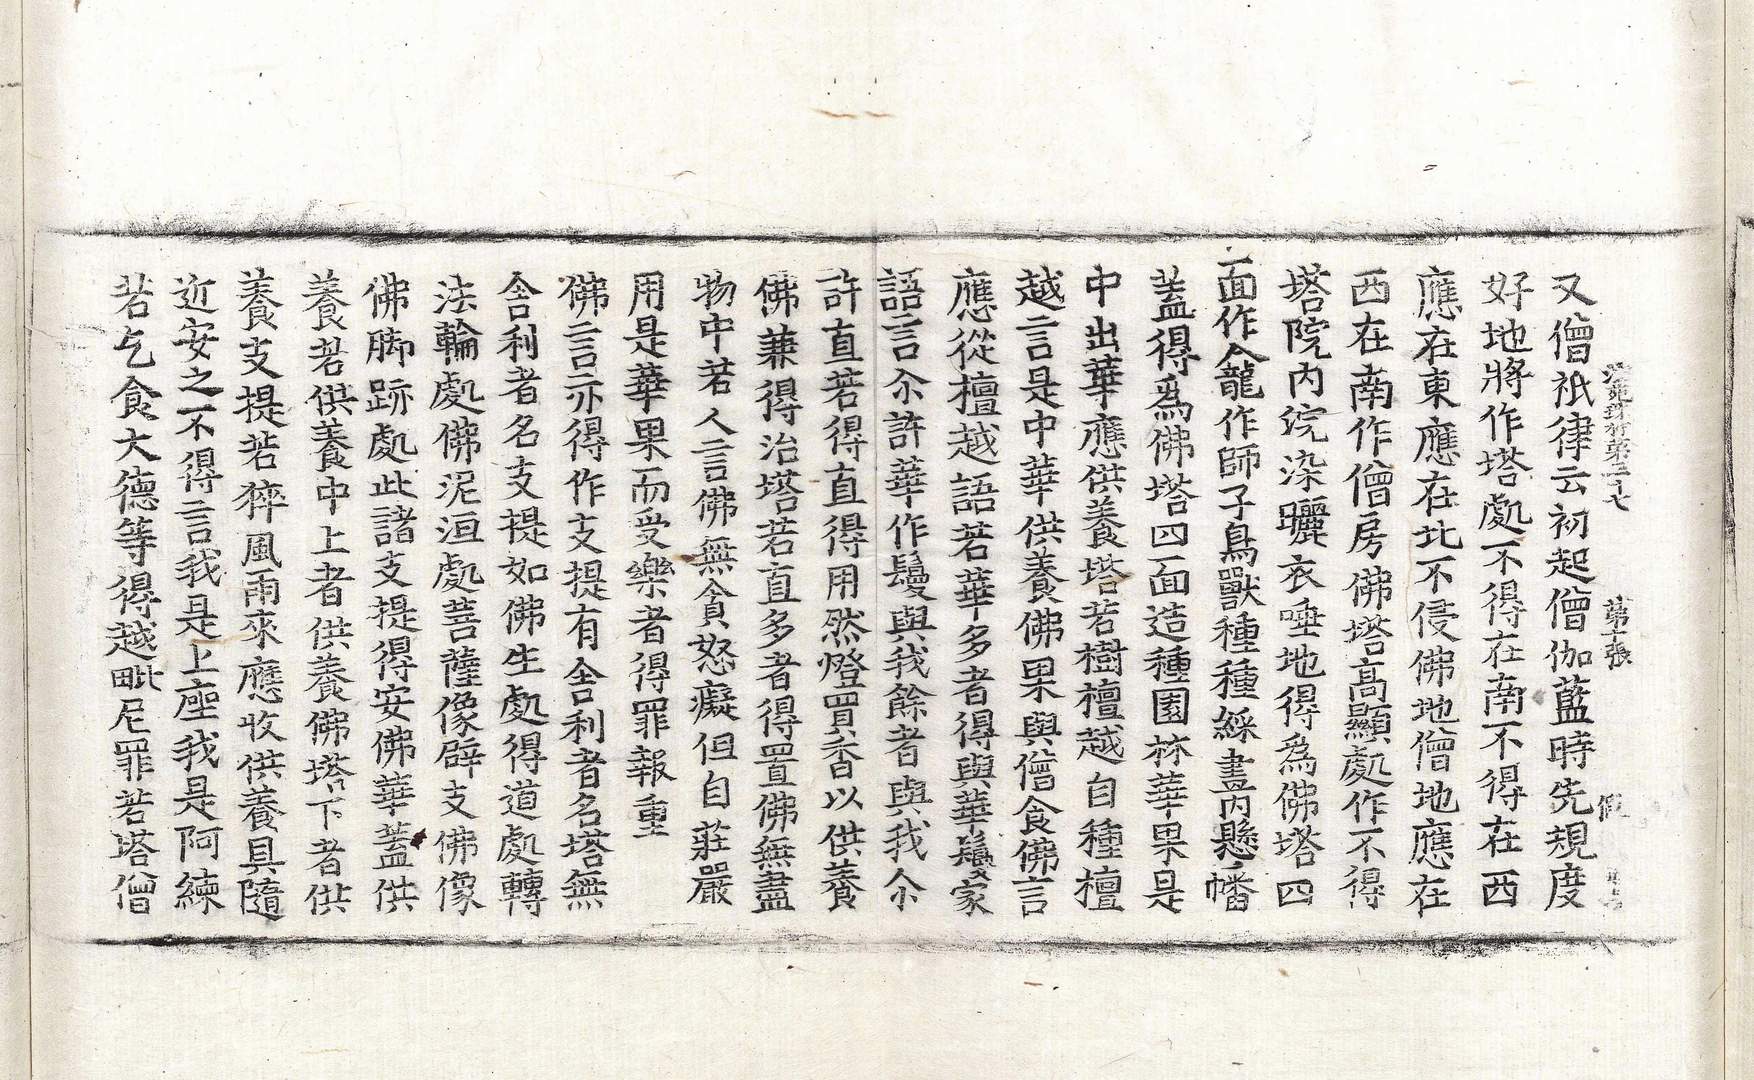 法苑珠林第三十七 第十張 假
又僧祇律云初起僧伽藍時先規度
好地將作塔處不得在南不得在西
應在東應在北不侵佛地僧地應在
西在南作僧房佛塔高顯處作不得
塔院內浣染曬衣唾地得爲佛塔四
面作龕作師子鳥獸種種綵畫內懸幡
蓋得爲佛塔四面造種園林華果是
中出華應供養塔若樹檀越自種檀
越言是中華供養佛果與僧食佛言
應從檀越語若華多者得與華鬘家
語言尒許華作鬘與我餘者與我尒
許直若得直得用然燈買香以供養
佛兼得治塔若直多者得置佛無盡
物中若人言佛無貪怒癡但自莊嚴
用是華果而受樂者得罪報重
佛言亦得作支提有舍利者名塔無
舍利者名支提如佛生處得道處轉
法輪處佛泥洹處菩薩像辟支佛像
佛脚跡處此諸支提得安佛華蓋供
養若供養中上者供養佛塔下者供
養支提若猝風雨來應收供養具隨
近安之不得言我是上座我是阿練
若乞食大德等得越毗尼罪若塔僧